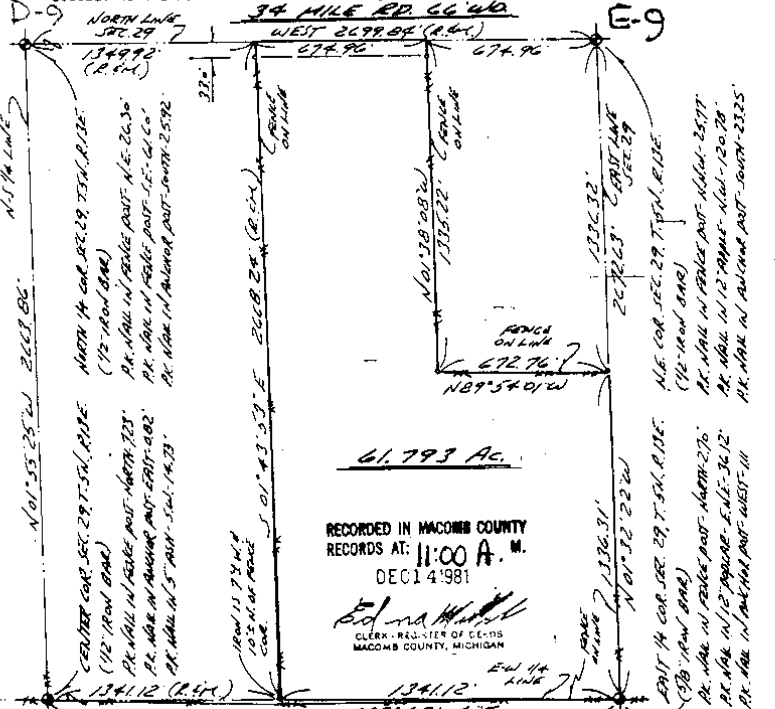 D-9
NORTH LINE
SEC. 29
34 MILE RD. 66' WD.
E-9
WEST 2699.84' (R.&M.)
1349.92'
(R.&M.)
674.96'
674.96'
33.0'
N-S 1/4 LINE
N01°55'25"W 2663.86'
NORTH 1/4 COR. SEC. 29, T.5N., R.13E.
(1/2" IRON BAR)
P.K. NAIL IN FENCE POST-N.E.-26.36'
P.K. NAIL IN FENCE POST-S.E.-61.60'
P.K. NAIL IN ANCHOR POST-SOUTH-25.92'
FENCE
ON LINE
S 01°43'53" E 2668.24' (R.&M.)
FENCE
ON LINE
N01°38'08"W
1335.22'
EAST LINE
SEC. 29
1336.32'
2672.63'
N.E. COR. SEC. 29, T.5N., R.13E.
(1/2" IRON BAR)
P.K. NAIL IN FENCE POST-N.W.-25.77'
P.K. NAIL IN 12" APPLE-N.W.-120.78'
P.K. NAIL IN ANCHOR POST-SOUTH-23.25'
FENCE
ON LINE
672.76'
N89°54'01"W
61.793 Ac.
RECORDED IN MACOMB COUNTY
RECORDS AT: 11:00 A. M.
DEC 14 1981
Edna
CLERK - REGISTER OF DEEDS
MACOMB COUNTY, MICHIGAN
CENTER COR. SEC. 29, T.5N., R.13E.
(1/2" IRON BAR)
P.K. NAIL IN FENCE POST-NORTH-7.23'
P.K. NAIL IN ANCHOR POST-EAST-0.82'
P.K. NAIL IN 5" ASH-S.W.-14.73'
IRON IS
N. OF FENCE
COR.
FENCE
ON LINE
1336.31'
N01°32'22"W
EAST 1/4 COR. SEC. 29, T.5N., R.13E.
(5/8" IRON BAR)
P.K. NAIL IN FENCE POST-NORTH-2.70'
P.K. NAIL IN 12" POPLAR-E.N.E-36.12'
P.K. NAIL IN ANCHOR POST-WEST-1.11
1341.12' (R.&M.)
1341.12'
E-W 1/4
LINE